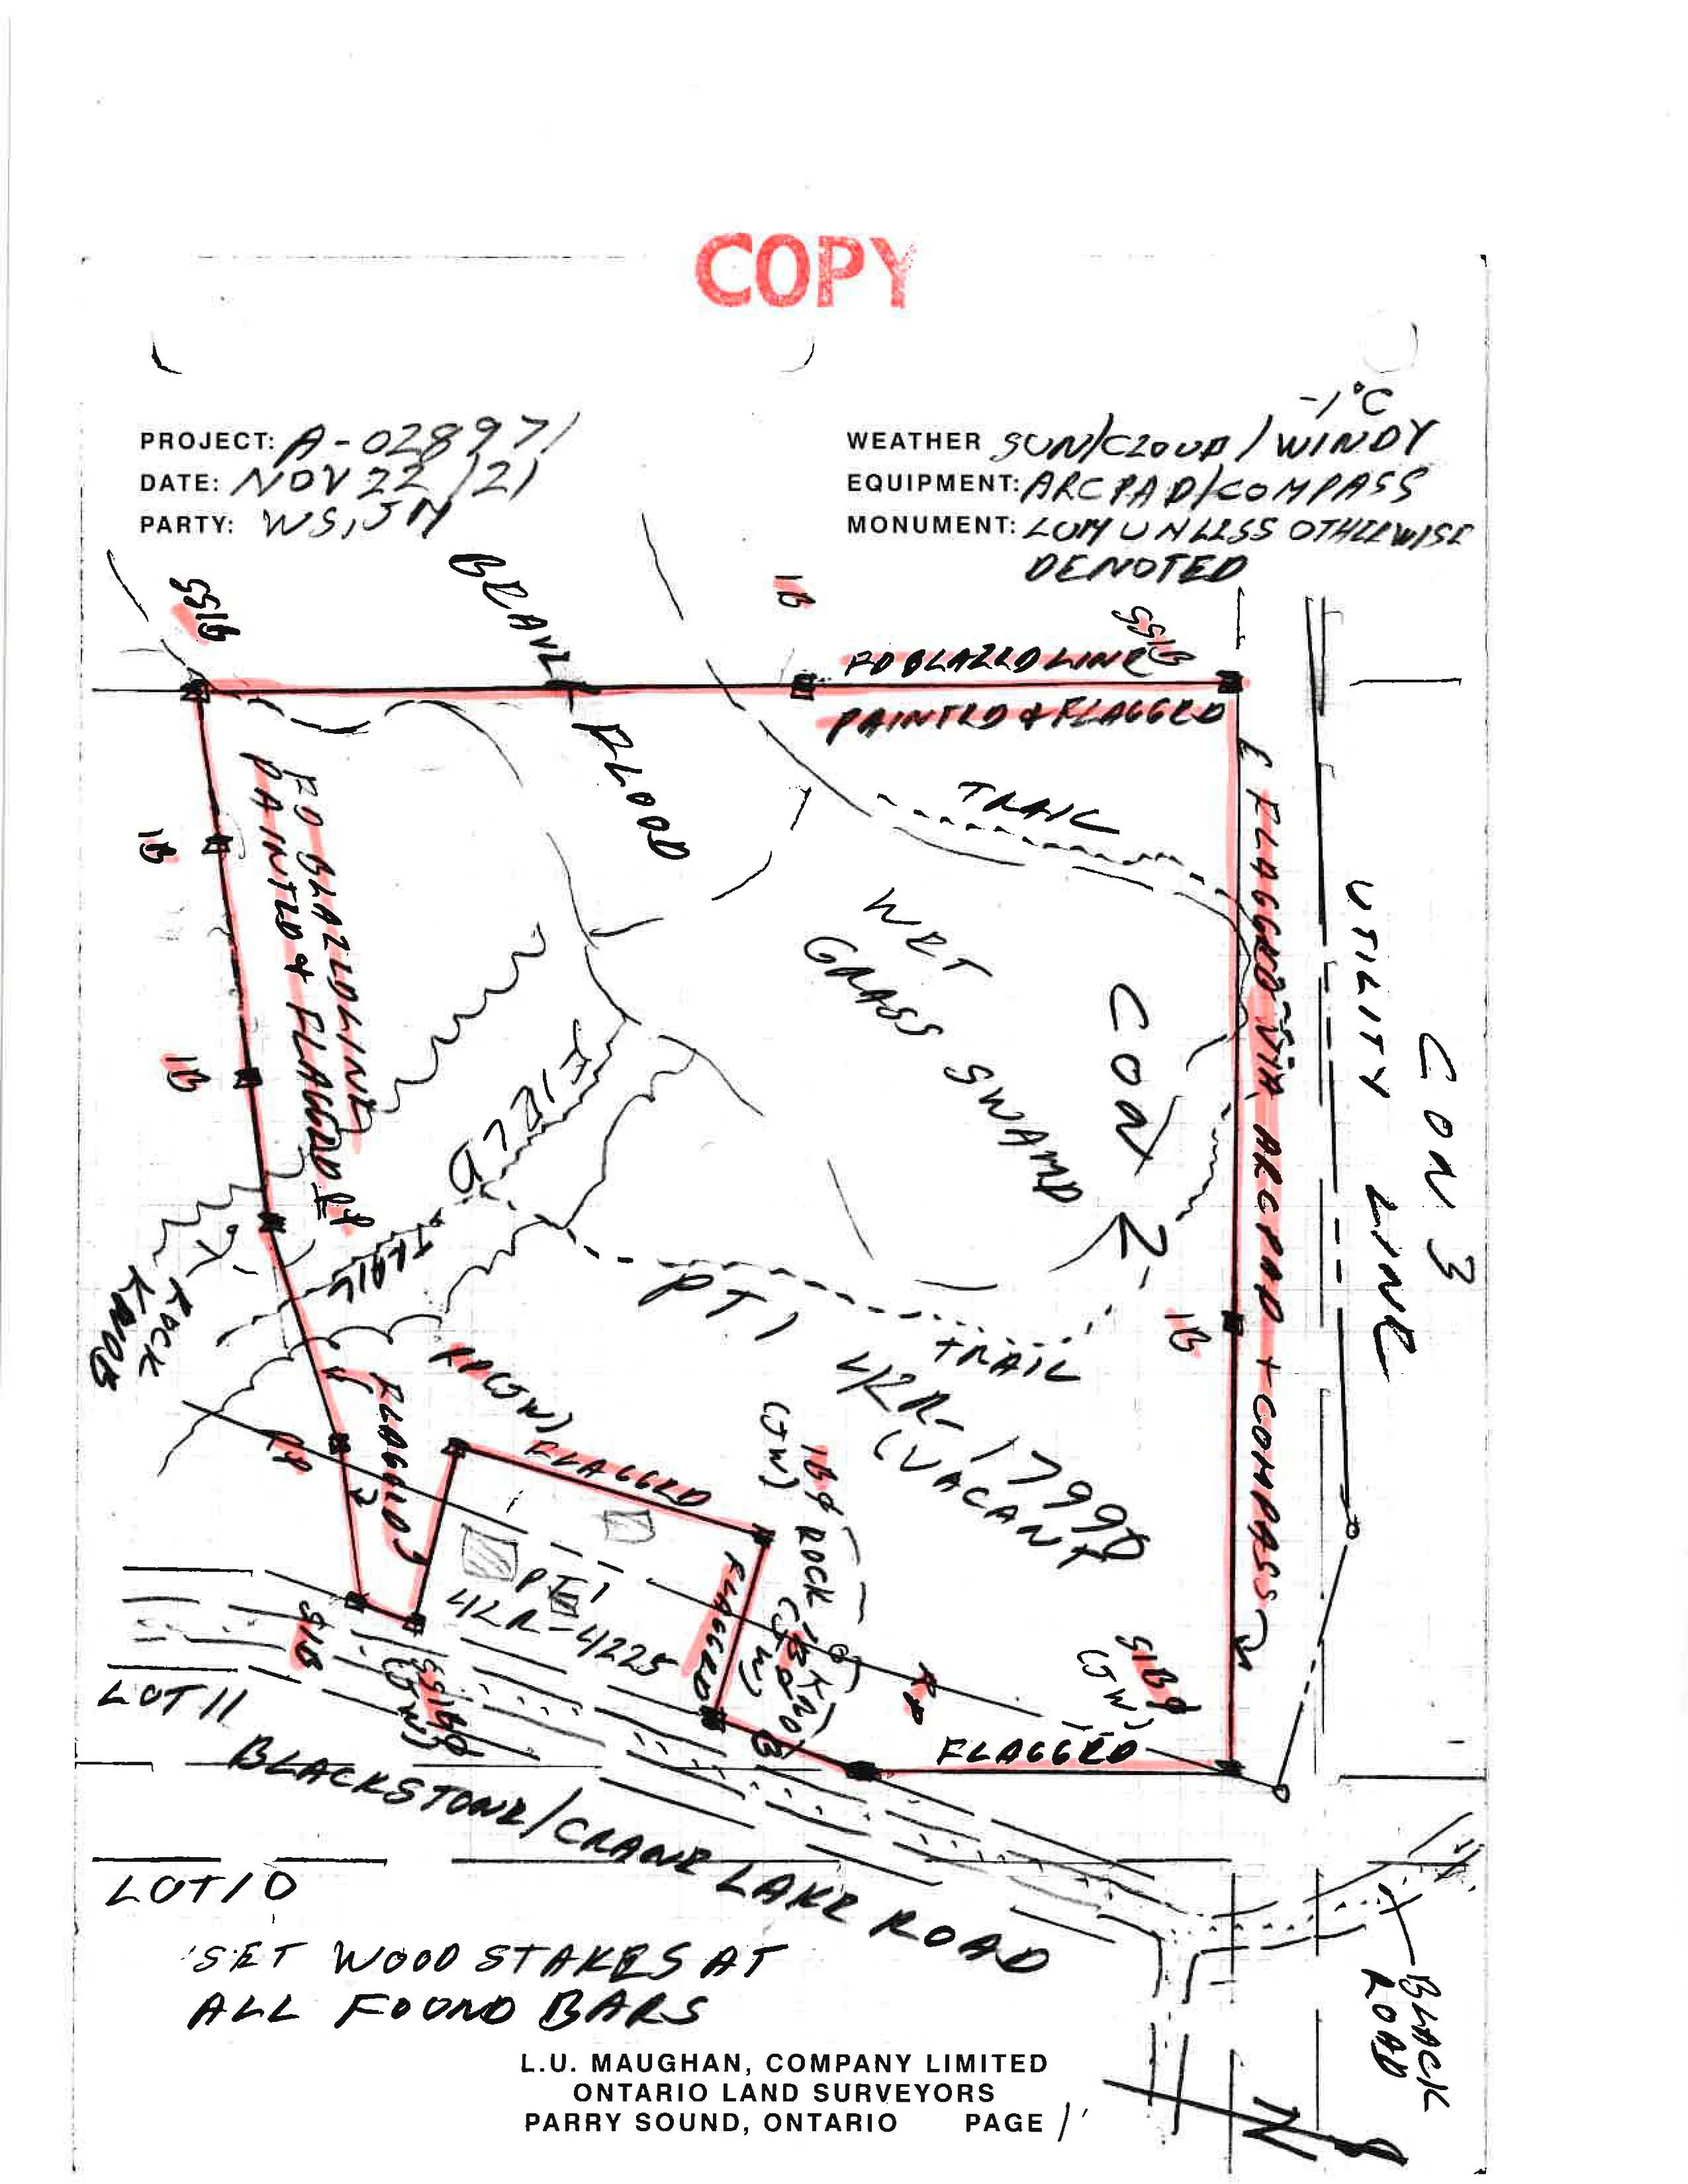 COPY
-1°C
PROJECT: A-028971
WEATHER SUN/CLOUD/WINDY
DATE: NOV 22/21
EQUIPMENT: ARCPAD/COMPASS
PARTY: WS, JM
MONUMENT: LUM UNLESS OTHERWISE
DENOTED
SSIB
BEAVER
FLOOD
IB
SSIB
FD BLAZED LINE
PAINTED & FLAGGED
TRAIL
FD BLAZED LINE
PAINTED & FLAGGED
IB
IB
WET
GRASS SWAMP
CON 2
FLAGGED VIA ARCPAD + COMPASS
UTILITY LINE
CON 3
FIELD
TRAIL
ROCK
KNOB
PT 1
TRAIL
42R-17998
(VACANT)
IB
FLAGGED
(JW)
FLAGGED
IBø
(JW)
ROCK
FLAGGED
PT 1
42R-4225
SIB
SSIBø
(JW)
SIBø
(JW)
FLAGGED
LOT 11
BLACKSTONE/CRANE LAKE ROAD
LOT 10
SET WOOD STAKES AT
ALL FOUND BARS
BLACK
ROAD
N
L.U. MAUGHAN, COMPANY LIMITED
ONTARIO LAND SURVEYORS
PARRY SOUND, ONTARIO PAGE 1